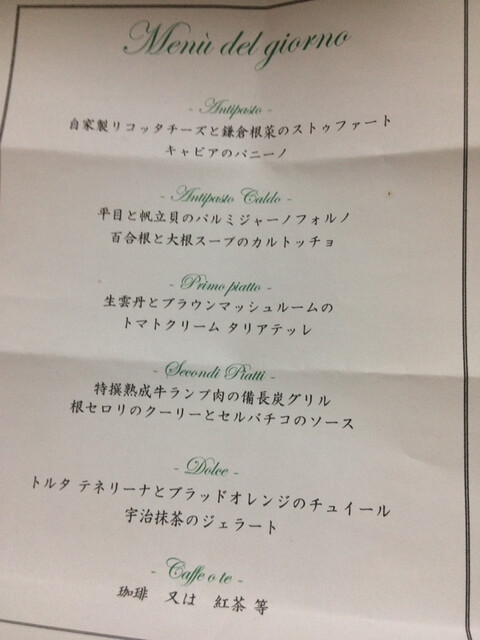 Menù del giorno
- Antipasto -
自家製リコッタチーズと鎌倉根菜のストゥファート
キャビアのパニーノ
- Antipasto Caldo -
平目と帆立貝のパルミジャーノフォルノ
百合根と大根スープのカルトッチョ
- Primo piatto -
生雲丹とブラウンマッシュルームの
トマトクリーム タリアテッレ
- Secondi Piatti -
特撰熟成牛ランプ肉の備長炭グリル
根セロリのクーリーとセルバチコのソース
- Dolce -
トルタ テネリーナとブラッドオレンジのチュイール
宇治抹茶のジェラート
- Caffe o te -
珈琲 又は 紅茶 等